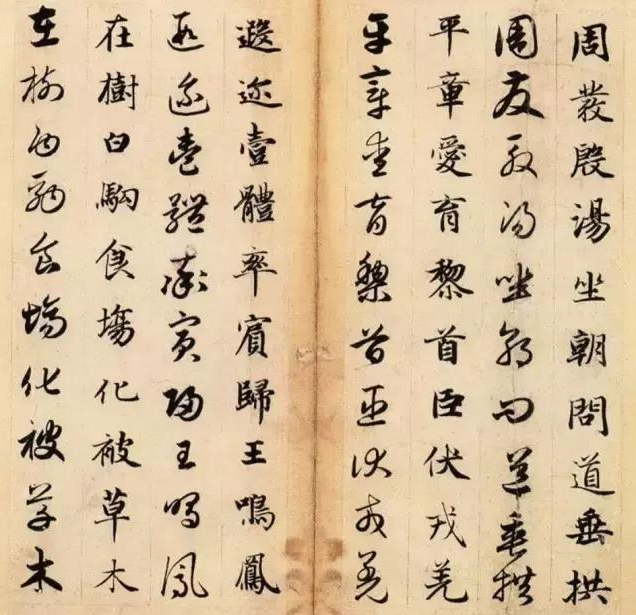 周發殷湯坐朝問道垂拱
周發殷湯坐朝問道垂拱
平章愛育黎首臣伏戎羌
平章愛育黎首臣伏戎羌
遐迩壹體率賓歸王鳴鳳
遐迩壹體率賓歸王鳴鳳
在樹白駒食塲化被草木
在樹白駒食塲化被草木